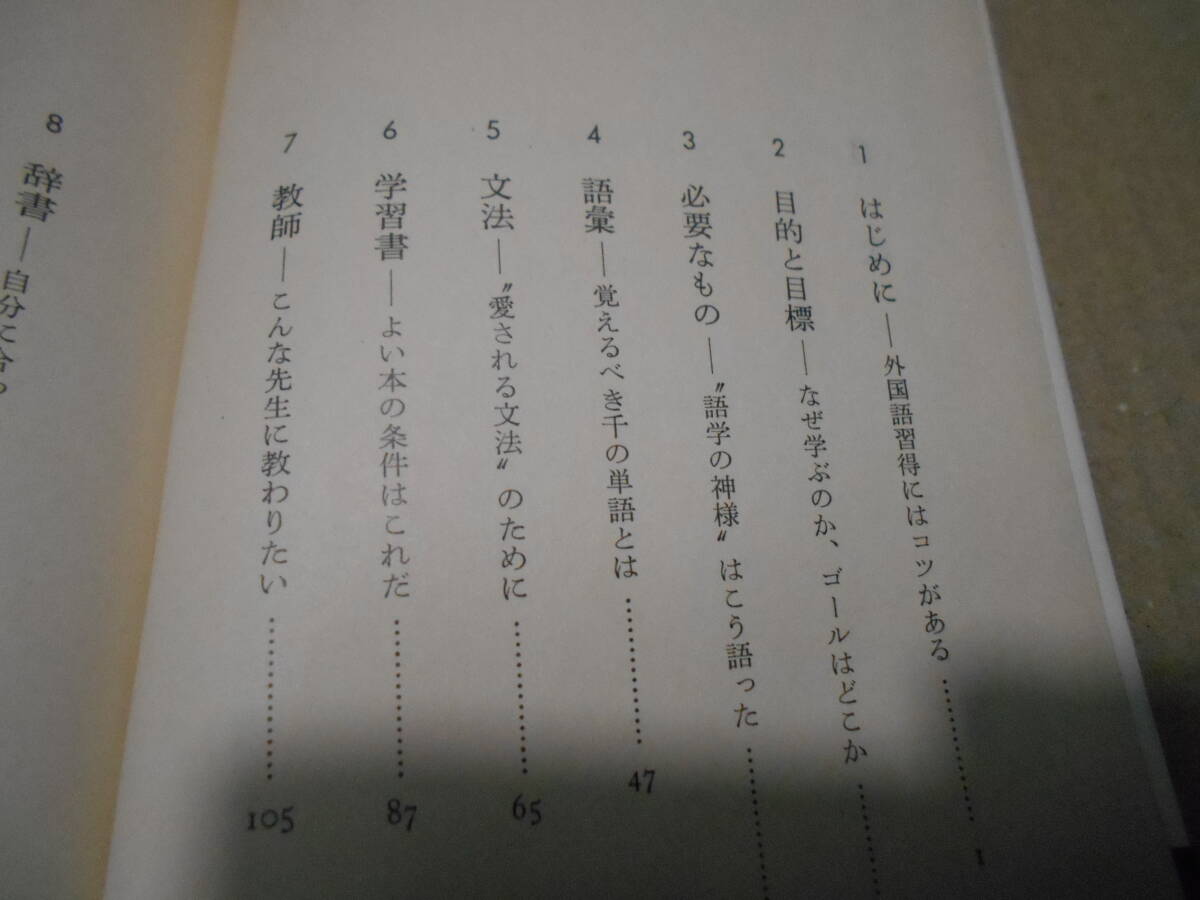 1 はじめに――外国語習得にはコツがある………… 1
2 目的と目標――なぜ学ぶのか、ゴールはどこか……
3 必要なもの――〝語学の神様〟はこう語った…………
4 語彙――覚えるべき千の単語とは………… 47
5 文法――〝愛される文法〟のために………… 65
6 学習書――よい本の条件はこれだ………… 87
7 教師――こんな先生に教わりたい………… 105
8 辞書――自分に合っ